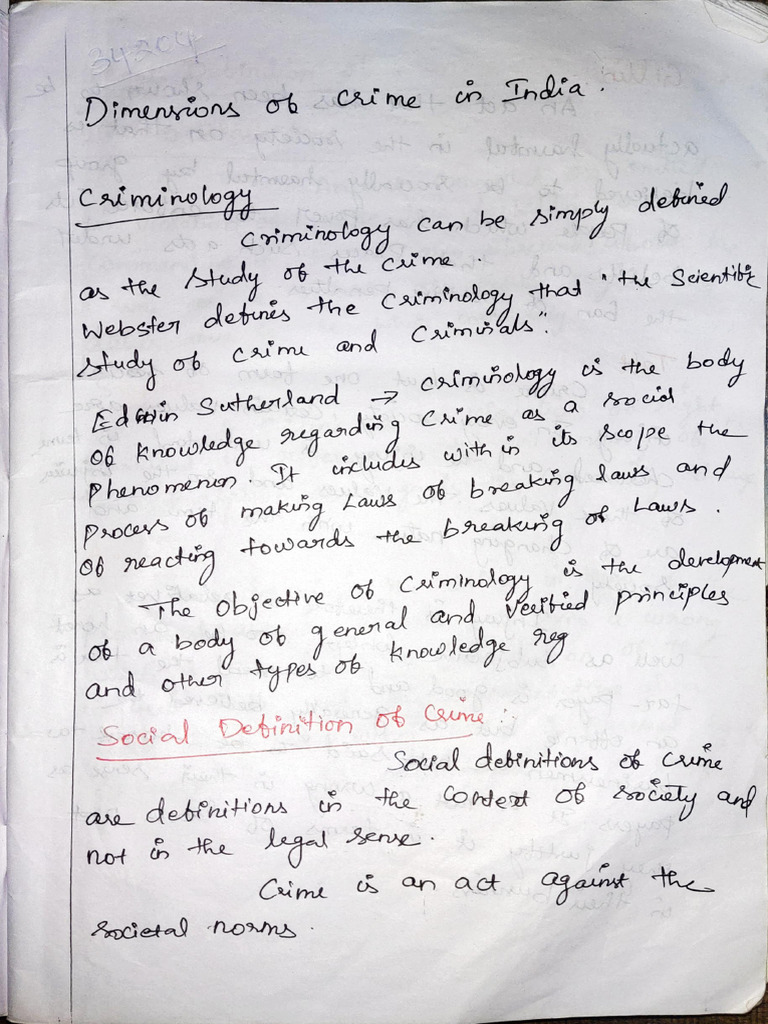 34204
Dimensions of crime in India.
Criminology
criminology can be simply defined
as the study of the crime.
Webster defines the criminology that "the Scientific
study of crime and criminals".
Edwin Sutherland → criminology is the body
of knowledge regarding crime as a social
phenomenon. It includes with in its scope the
process of making Laws of breaking laws and
of reacting towards the breaking of Laws.
The objective of criminology is the development
of a body of general and verified principles
and other types of knowledge reg
Social Definition of Crime:
Social definitions of crime
are definitions in the context of society and
not in the legal sense.
Crime is an act against the
societal norms.